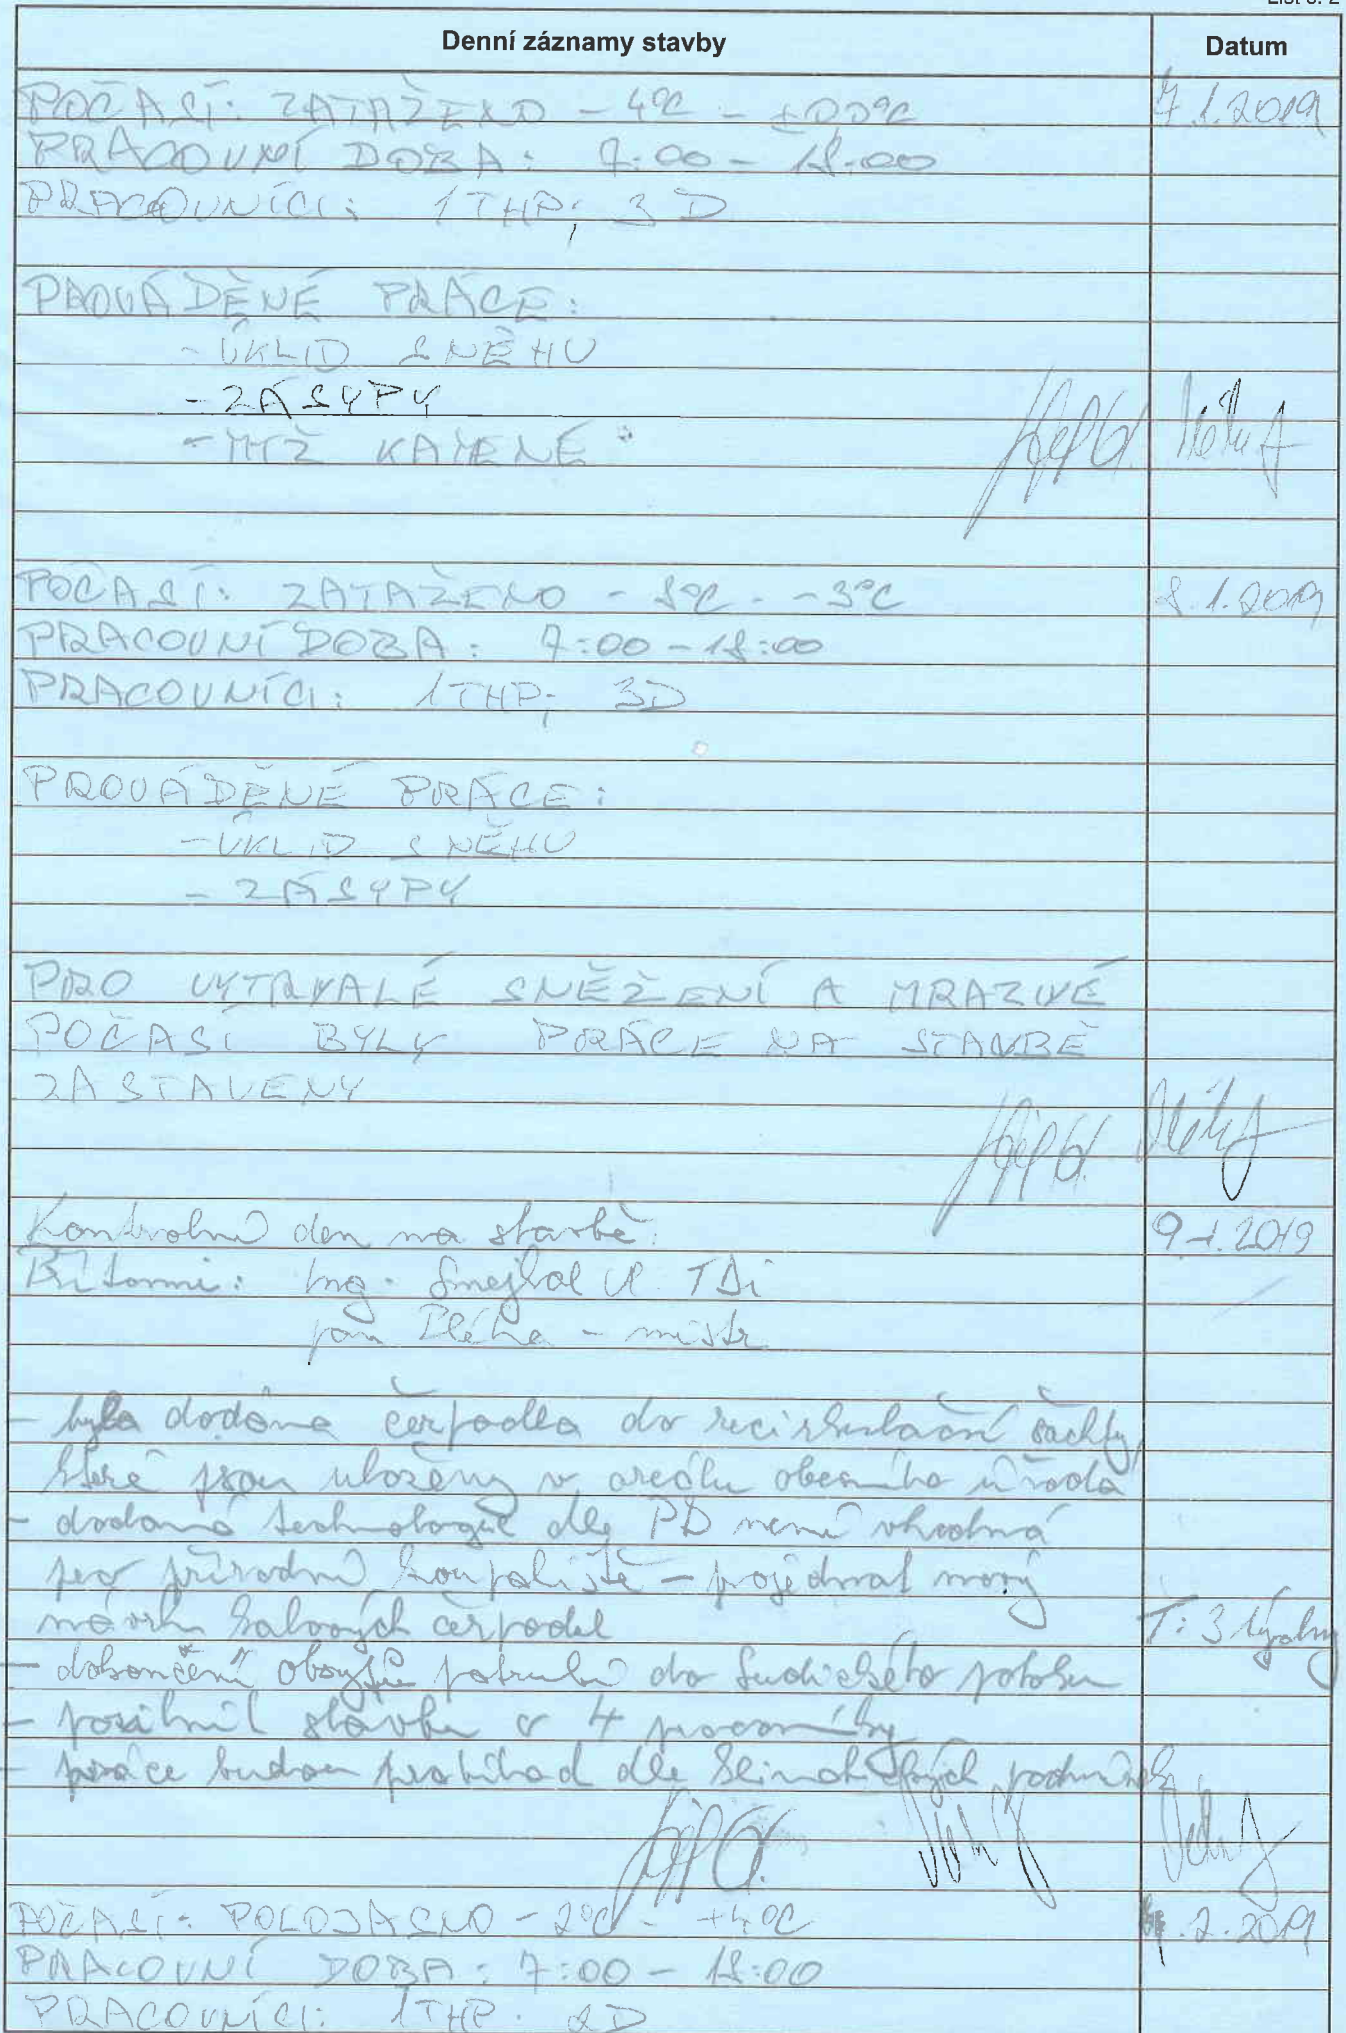 List č. 2
Denní záznamy stavby Datum
POČASÍ: ZATAŽENO -4°C - ±0,0°C 7.1.2019
PRACOVNÍ DOBA: 7:00 - 18:00
PRACOVNÍCI: 1THP; 3D
PROVÁDĚNÉ PRÁCE:
- ÚKLID SNĚHU
- ZÁSYPY
- KAMENÉ
POČASÍ: ZATAŽENO - 8°C - -3°C 8.1.2019
PRACOVNÍ DOBA: 7:00 - 18:00
PRACOVNÍCI: 1THP; 3D
PROVÁDĚNÉ PRÁCE:
- ÚKLID SNĚHU
- ZÁSYPY
PRO VYTRVALÉ SNĚŽENÍ A MRAZIVÉ
POČASÍ BYLY PRÁCE NA STAVBĚ
ZASTAVENY
Kontrolní den na stavbě: 9.1.2019
Přítomni: Ing. Smejkal V. TDi
pan Pléha - mistr
- byla dodána čerpadla do recirkulační šachty,
které jsou uloženy v areálu obecního úřadu
- dodaná technologie dle PD není vhodná
pro přírodní koupaliště - projednat nový
návrh kalových čerpadel T: 3 týdny
- dokončení potrubí do Sudického potoka
- posílnil stavbu o 4 pracovníky
- práce budou probíhad dle klimatických podmínek
POČASÍ: POLOJASNO -2°C - +4°C .2.2019
PRACOVNÍ DOBA: 7:00 - 18:00
PRACOVNÍCI: 1THP. 2D